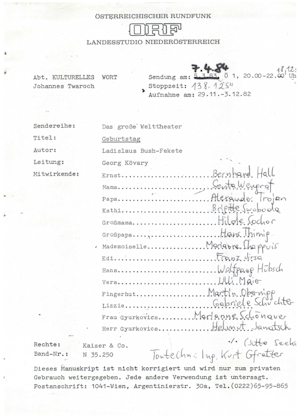 ÖSTERREICHISCHER RUNDFUNK
ORF
LANDESSTUDIO NIEDERÖSTERREICH
7.4.84
Abt. KULTURELLES WORT Sendung am: Ö 1, 20.00-22.00 Uhr
Johannes Twaroch Stoppzeit: 138'25"
Aufnahme am: 29.11.-3.12.82
Sendereihe: Das große Welttheater
Titel: Geburtstag
Autor: Ladislaus Bush-Fekete
Leitung: Georg Kövary
Mitwirkende: Ernst Bernhard Hall
Mama Weingraf
Papa Alexander Trojan
Kathi Brigitte Swoboda
Großmama Hilde Sochor
Großpapa Hans Thimig
Mademoiselle Marianne Chappuis
Edi Franz
Hans Wolfgang Hübsch
Vera Ulli Maier
Fingerhut Martin Obernigg
Lizzie Gabriele Schuchter
Frau Gyurkovics Marianne Schönauer
Herr Gyurkovics Helmut Janatsch
Rechte: Kaiser & Co.
Band-Nr.: N 35.250 Tontechn.: Ing. Kurt
Dieses Manuskript ist nicht korrigiert und wird nur zum privaten
Gebrauch weitergegeben. Jede andere Verwendung ist untersagt.
Postanschrift: 1041-Wien, Argentinierstr. 30a, Tel.(0222)65-95-865